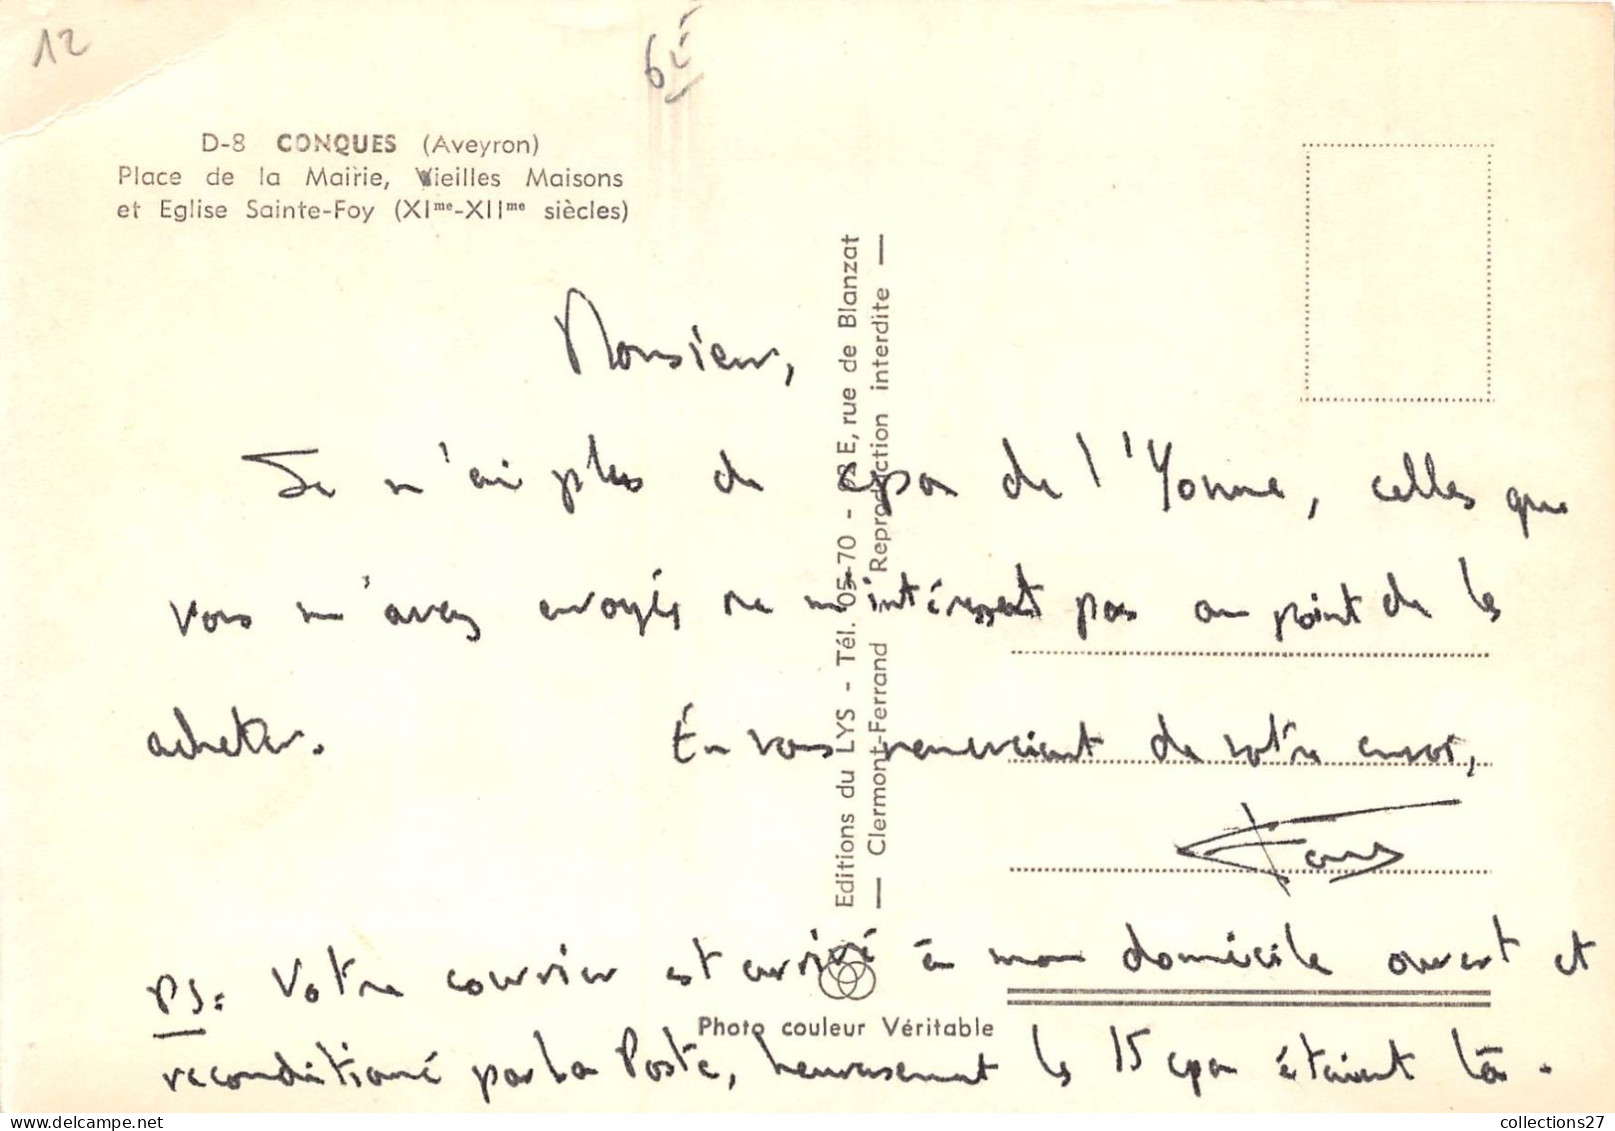 12
D-8 CONQUES (Aveyron)
Place de la Mairie, Vieilles Maisons
et Eglise Sainte-Foy (XIme-XIIme siècles)
Monsieur,
Je n'ai plus de cpa de l'Yonne, celles que
vous m'avez envoyés ne m'intéressent pas au point de les
acheter. En vous remerciant de votre envoi,
PS: Votre courrier est arrivé à mon domicile ouvert et
reconditionné par La Poste, heureusement les 15 cpa étaient là.
Editions du LYS - Tél. 05-70 - E, rue de Blanzat
— Clermont-Ferrand Reproduction interdite —
Photo couleur Véritable
collections27